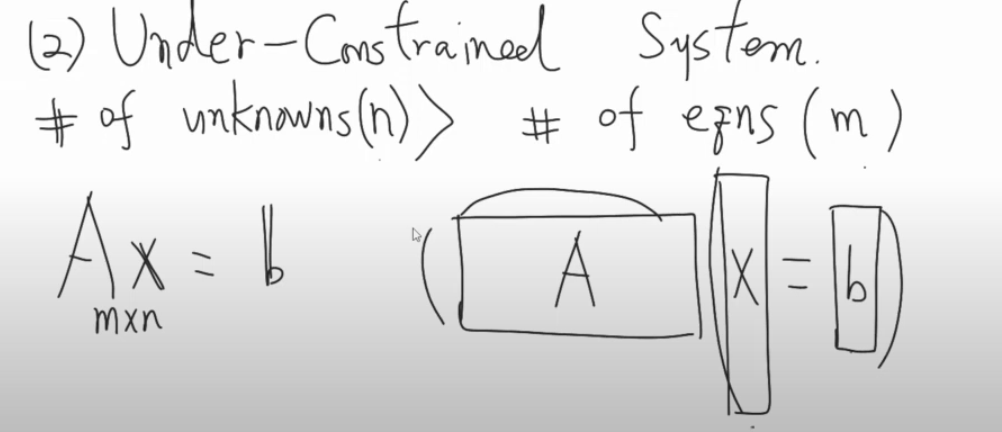 (2) Under-Constrained System.
# of unknowns(n) > # of eqns (m)
A x = b ( A x = b )
mxn